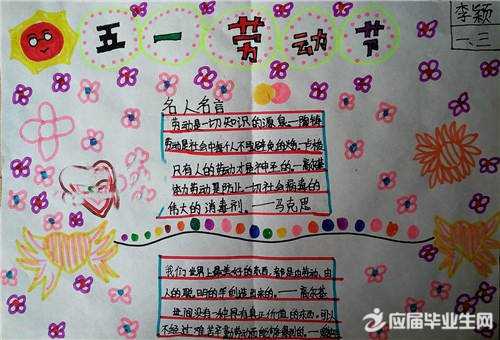 五一劳动节
李颖
一、三
名人名言
劳动是一切知识的源泉——陶铸
劳动是社会中每个人不可避免的义务——卢梭
只有人的劳动才是神圣的。——高尔基
体力劳动是防止一切社会病毒的
伟大的消毒剂。——马克思
我们世界上最美好的东西,都是由劳动、由
人的聪明的手创造出来的。——高尔基
世间没有一种具有真正价值的东西,可以
不经过艰苦辛勤劳动而能够得到的。
应届毕业生网
YJBYS.COM